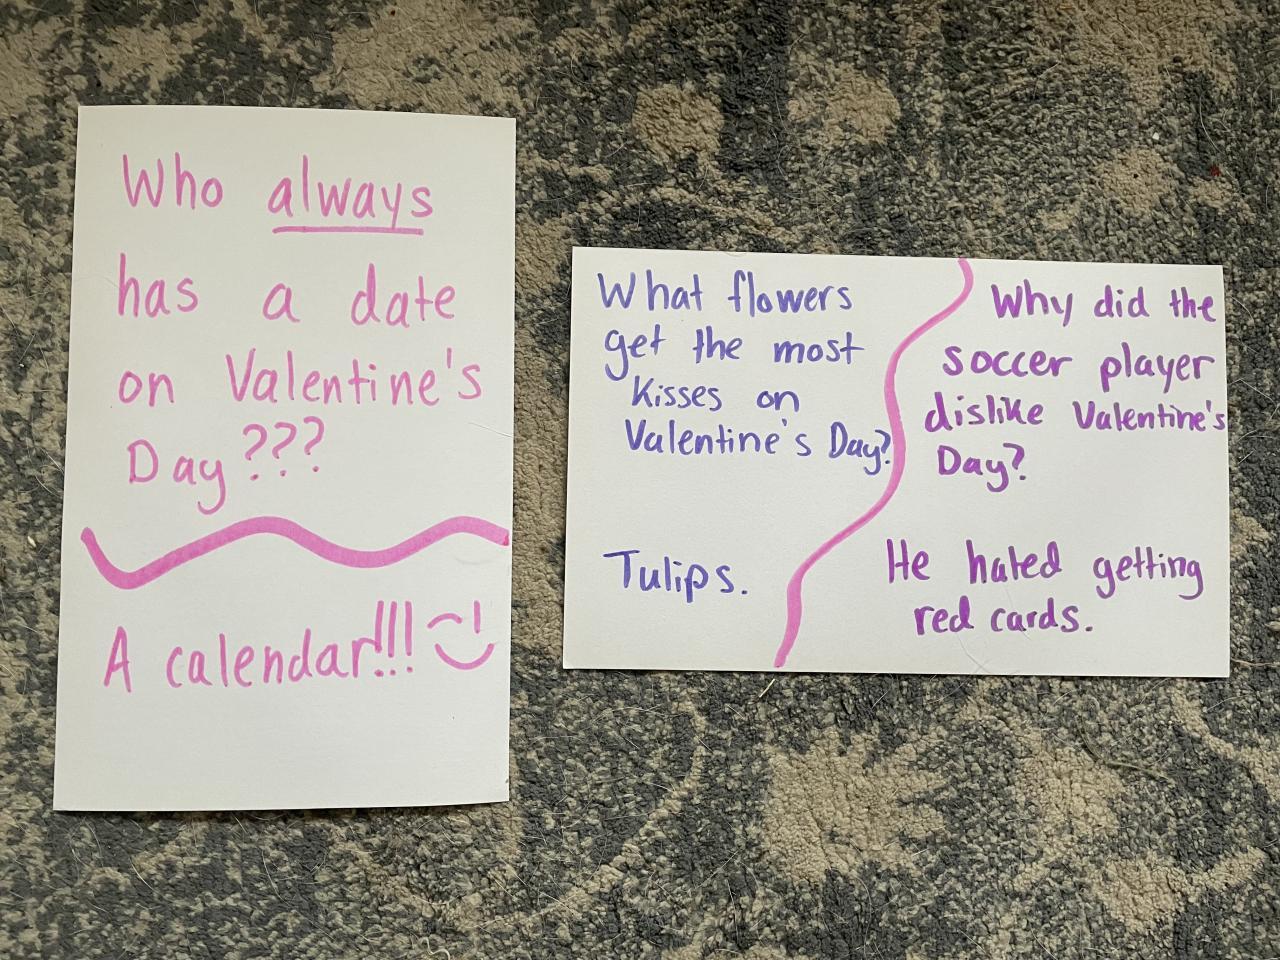 Who always
has a date
on Valentine's
Day???
A calendar!!!
What flowers
get the most
Kisses on
Valentine's Day?
Tulips.
Why did the
soccer player
dislike Valentine's
Day?
He hated getting
red cards.